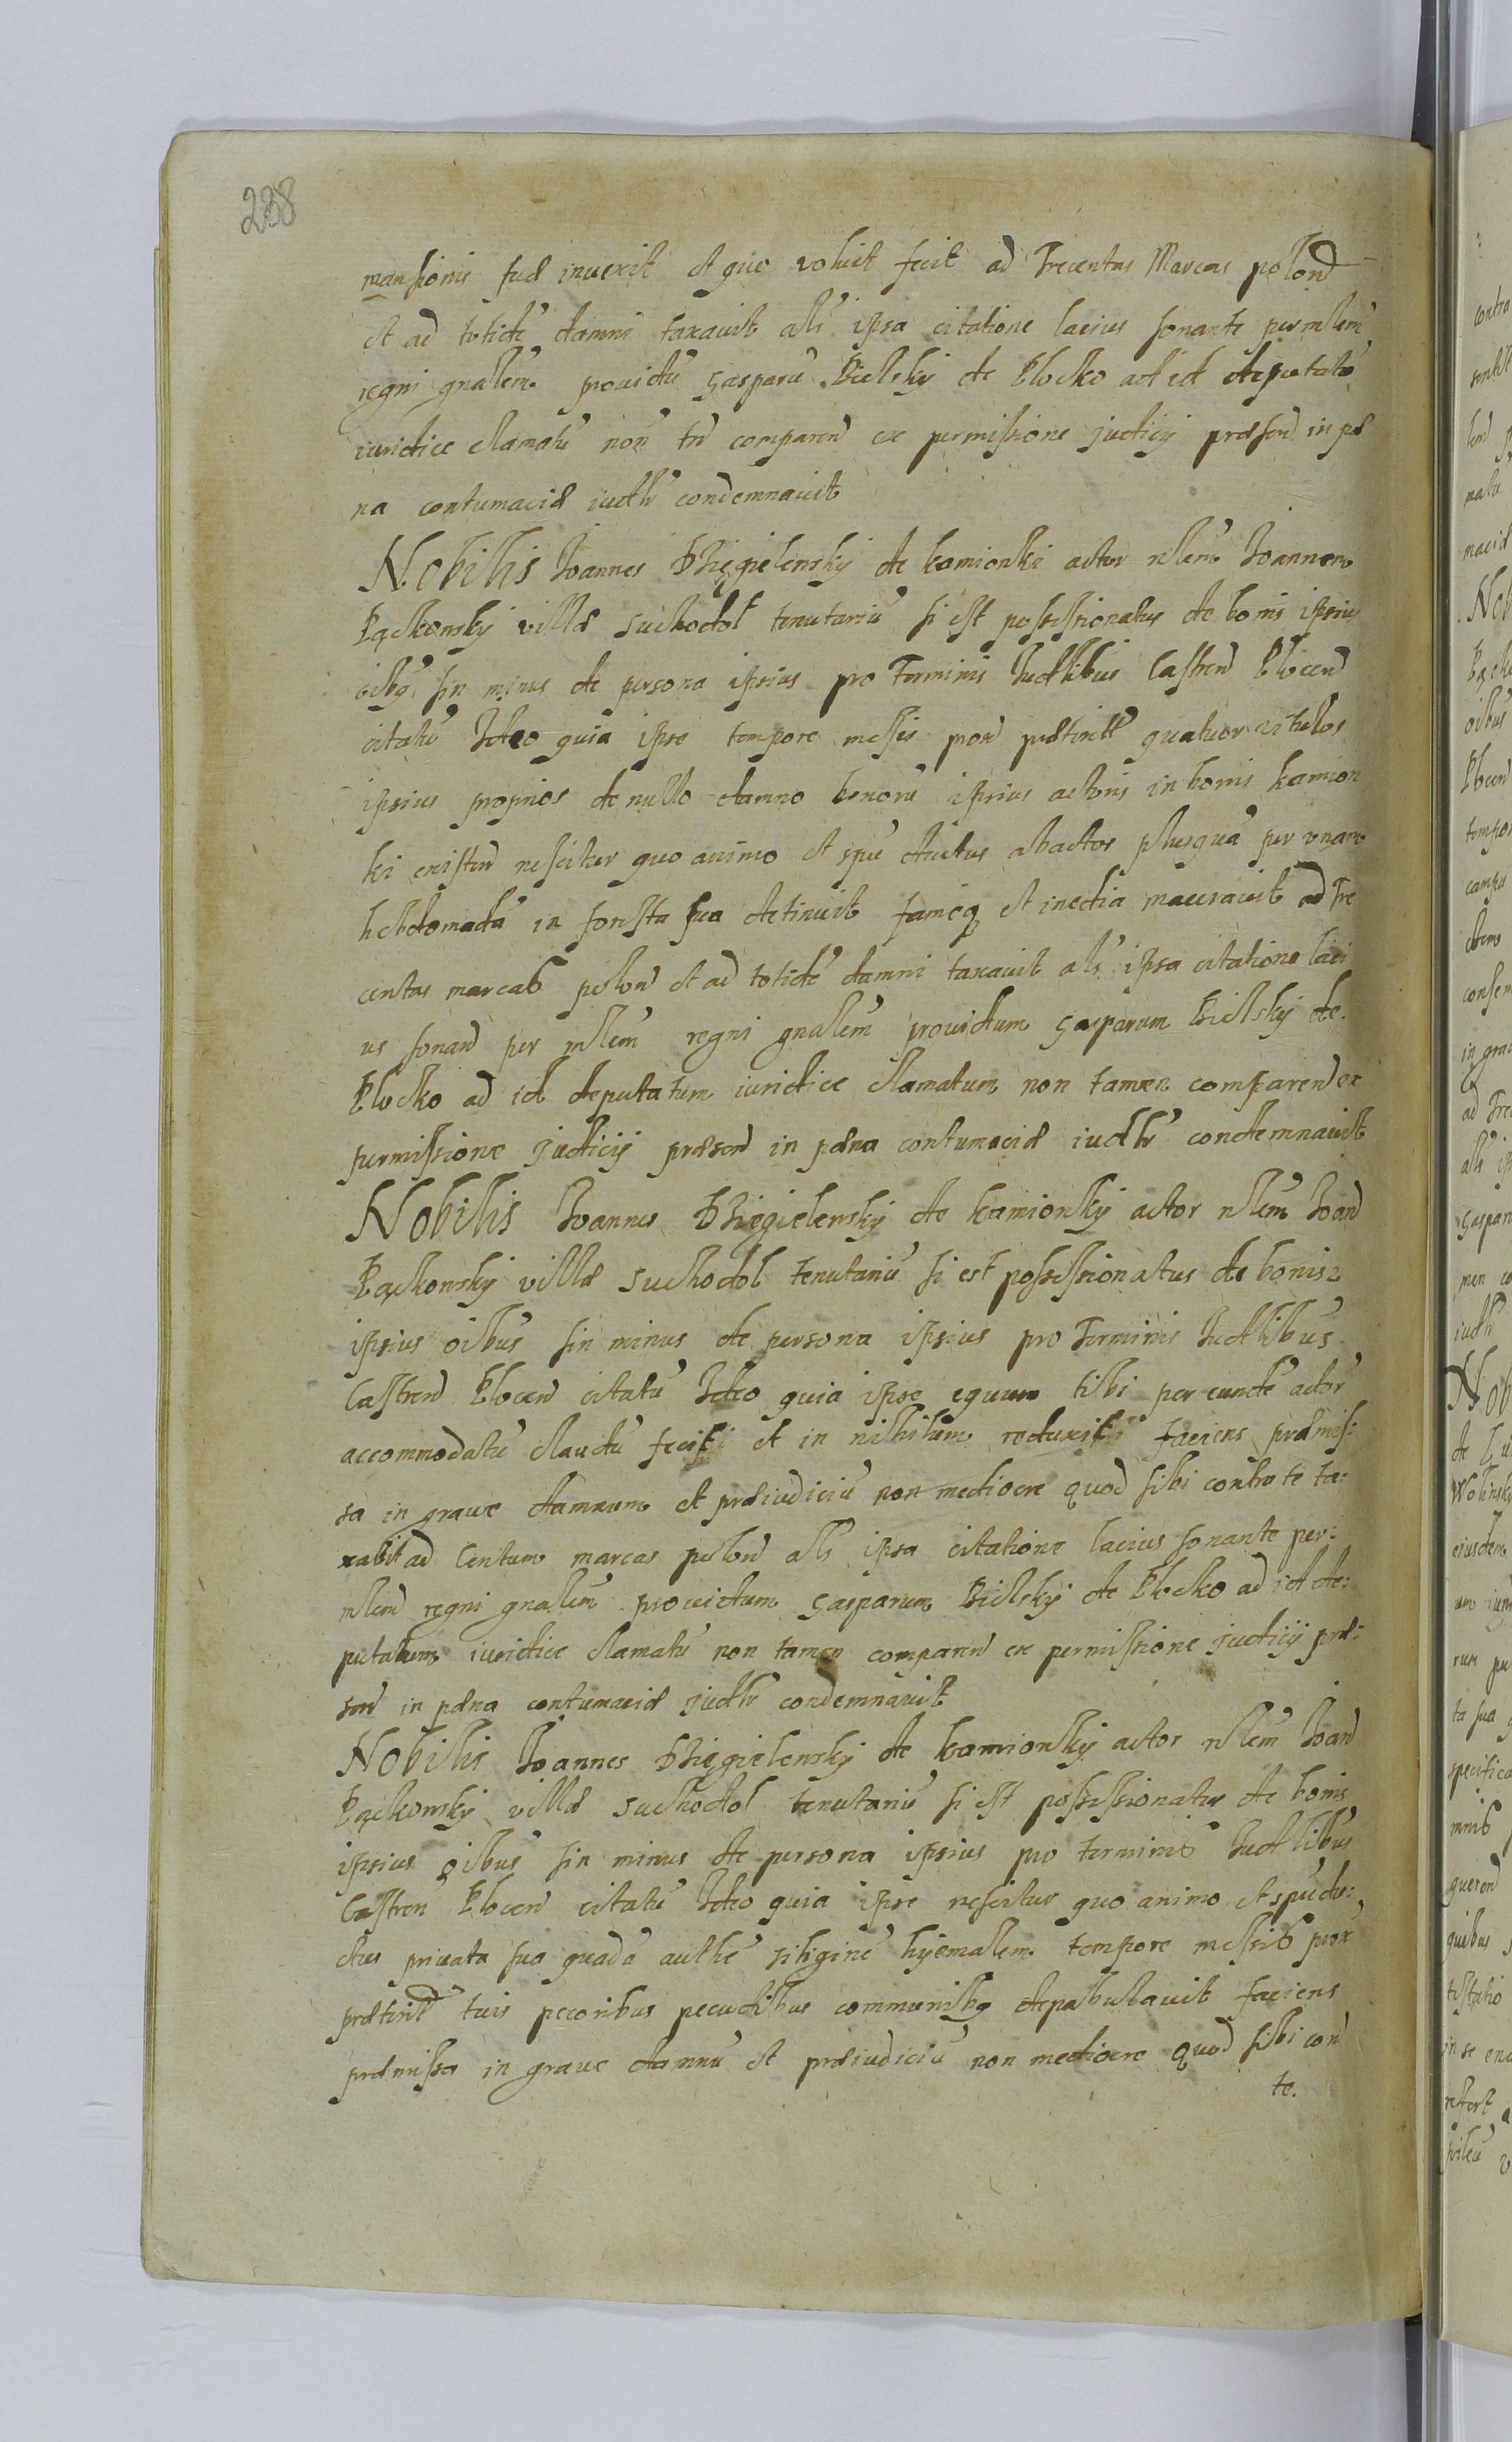 238
mansionis suæ inuexit et quo voluit fecit ad Trecentas Marcas polon
et ad totidē damni taxauit als ipsa citatione lacius sonante per mlem
regni gnalem prouidū Gasparū Bielsky de Plocko ad id deputatū
iuridice clamatū non tn comparen ex permissione judicij præsen in pæ
na contumaciæ iudlr condemnauit
Nobilis Joannes Dzięgielewsky de Kamionki actor nlem Joannem
Pączkowsky villæ Suchodol tenutariū si est possessionatus de bonis ipsius
oibq sin minus de persona ipsius pro Terminis Judlibus Castren Plocen
citatū Ideo quia ipse tempore messis prox præterit quatuor vitulos
ipsius proprios de nullo damno bonorū ipsius actoris in bonis Kamion
ki existen nescitur quo animo et spū ductus abactos plusquā per vnam
hebdomadā in sua detinuit fameq et inedia macerauit ad Tre
centas marcas polon et ad totidē damni taxauit als ipsa citatione laci
us sonan per mlem regni gnalem prouidum Gasparum Bielsky de
Plocko ad id deputatum iuridice clamatum non tamen comparen ex
permissione Judicij præsen in pæna contumaciæ iudlr condemnauit
Nobilis Joannes Dzięgielewsky de Kamionky actor nlem Joan
Pączkowsky villæ Suchodol tenutariū si est possessionatus de bonis
ipsius oibus sin minus de persona ipsius pro Terminis Judlibus
Castren Plocen citatū Ideo quia ipse equum tibi per eundē actorē
accommodatū claudū fecit et in nihilum reduxit faciens præmis:
sa in graue damnum et præiudiciū non mediocre quod sibi contra te ta:
xabit ad Centum marcas polon als ipsa citatione lacius sonante per:
mlem regni gnalem prouidum Gasparum Bielsky de Plocko ad id de:
putatum iuridice clamatū non tamen comparen ex permissione judicij præ:
sen in pæna contumaciæ judlr condemnauit
Nobilis Joannes Dzięgielewsky de Kamionky actor nlem Joan
Pączkowsky villæ Suchodol tenutariū si est possessionatus de bonis
ipsius oibus sin minus de persona ipsius pro terminis Judlibus
Castren Plocen citatū Ideo quia ipse nescitur quo animo et spū du:
ctus priuata sua quadā authē siliginē hyemalem tempore messis prox
præterit tuis pecoribus pecudibus communibq depabulauit faciens
præmissa in graue damnū et præiudiciū non mediocre quod sibi con
te.